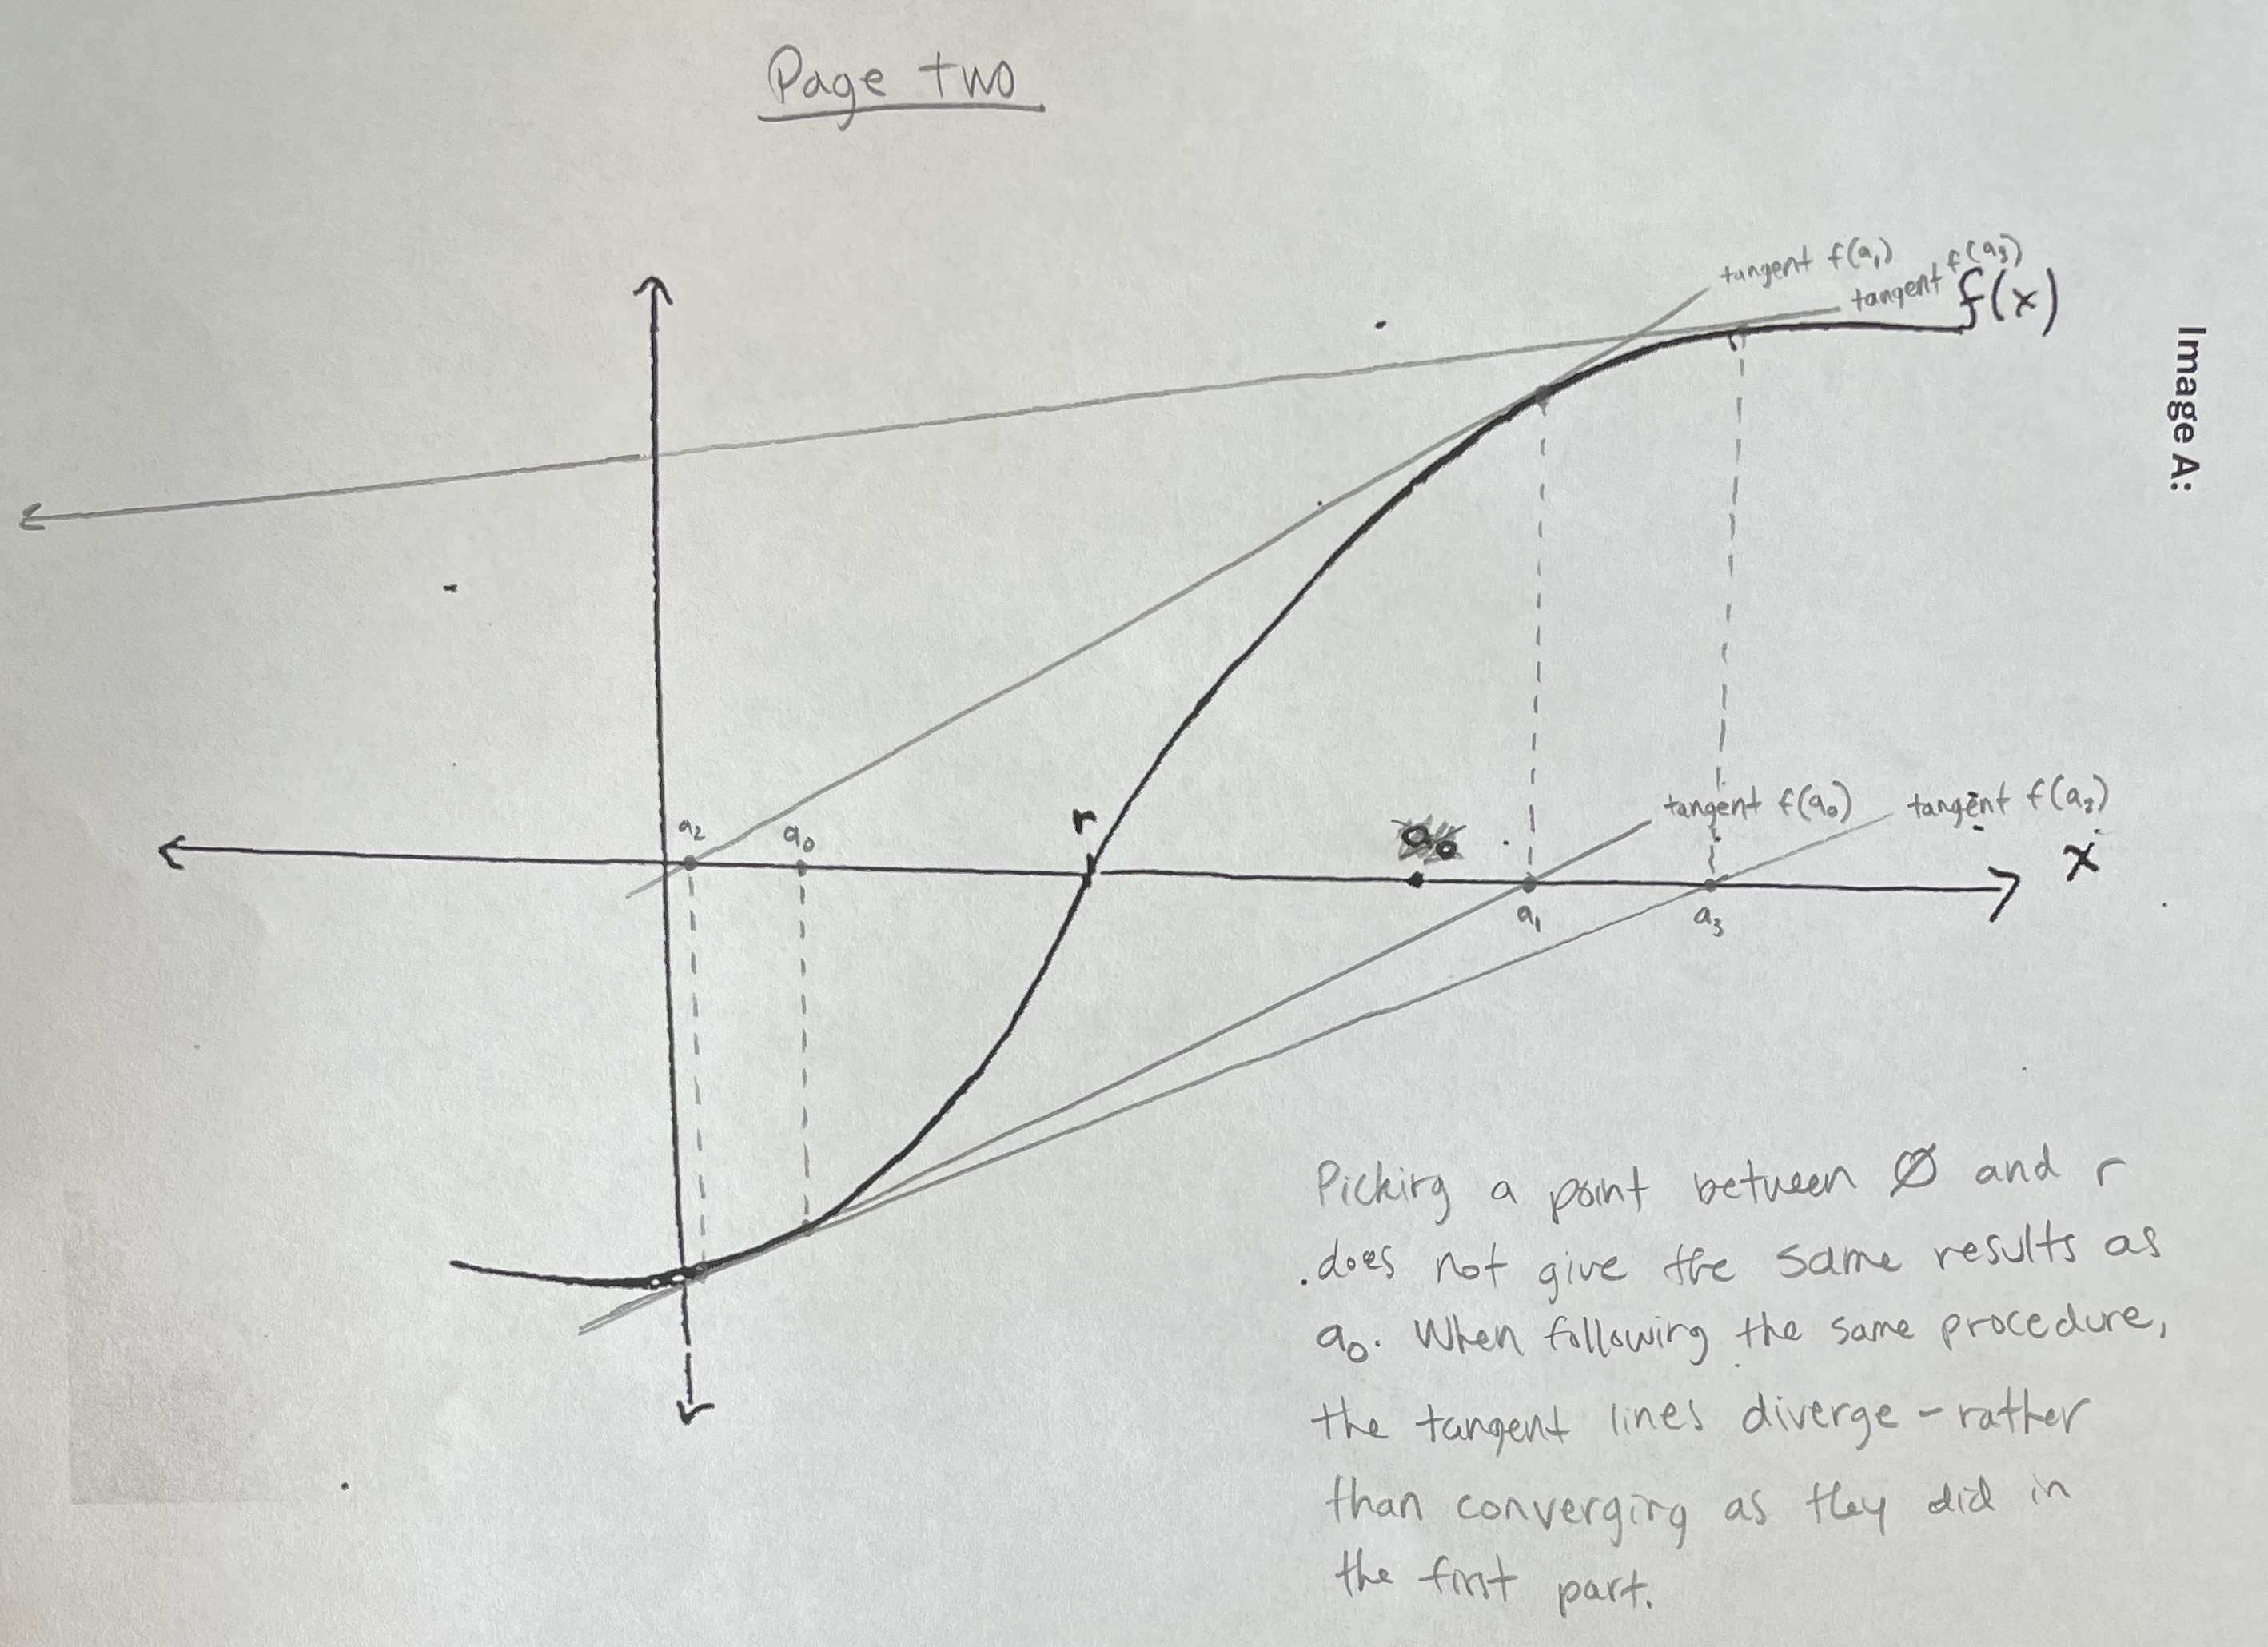 Page two
tangent f(a₁)
tangent f(a₃)
f(x)
Image A:
r
a₂
a₀
a₀
tangent f(a₀)
tangent f(a₂)
x
a₁
a₃
Picking a point between Ø and r
does not give the same results as
a₀. When following the same procedure,
the tangent lines diverge - rather
than converging as they did in
the first part.